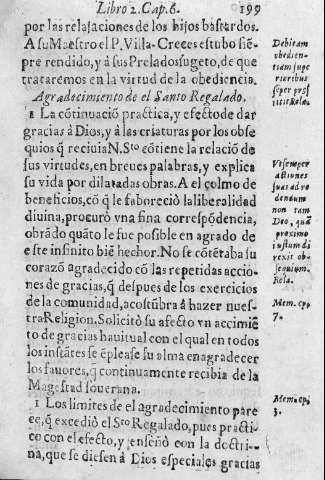 Libro 2. Cap. 6. 199
por las relajaciones de los hijos bastardos.
A su Maestro el P. Villa-Creces estubo siẽ-
pre rendido, y à sus Prelados sugeto, de que
trataremos en la virtud de la obediencia.
Debitam
obedien-
tiam supe
rioribus
sẽper
Agradecimiento de el Santo Regalado.
1 La cõtinuaciõ practica, y efecto de dar
gracias à Dios, y à las criaturas por los obse
quios q̃ recivia N. Sto cõtiene la relaciõ de
sus virtudes, en breves palabras, y explica
su vida por dilatadas obras. A el colmo de
beneficios, cõ q̃ le faboreciò la liberalidad
diuina, procurò vna fina correspõdencia,
obrãdo quãto le fue posible en agrado de
este infinito biẽ hechor. No se cõtẽtaba su
corazõ agradecido cõ las repetidas accio-
nes de gracias, q̃ despues de los exercicios
de la comunidad, acostũbra á hazer nues-
tra Religion. Solicitò su afecto vn accimiẽ
to de gracias hauitual con el qual en todos
los instãtes se ẽplease su alma en agradecer
los fauores, q̃ continuamente recibia de la
Magestad souerana.
Vt semper
actiones
suas ad vi
dendum
non tam
Deo, quã
proximo
iustum di
rexit ob-
sequium.
Rela.
Mem. cp,
7.
1 Los limites de el agradecimiento pare
ce, q̃ excediò el Sto Regalado, pues practi-
co con el efecto, y enseñò con la doctri-
na, que se diesen à Dios especiales gracias
Mem. cp,
3.